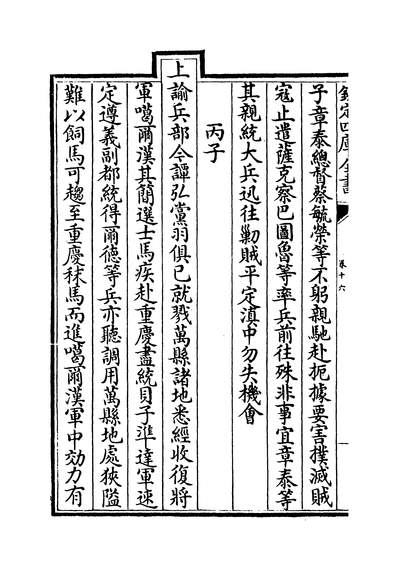 欽定四庫全書
卷十六
子章泰總督蔡毓榮等不躬親馳赴扼據要害撲滅賊
宼止遣薩克察巴圖魯等率兵前往殊非事宜章泰等
其親統大兵迅往勦賊平定滇中勿失機會
丙子
上諭兵部今譚弘黨羽俱已就戮萬縣諸地悉經收復將
軍噶爾漢其簡選士馬疾赴重慶盡統貝子準達軍速
定遵義副都統得爾德等兵亦聽調用萬縣地處狹隘
難以飼馬可趨至重慶秣馬而進噶爾漢軍中効力有